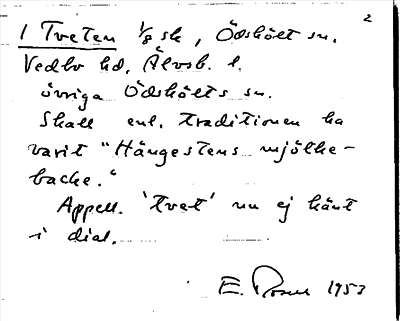 2
1 Tveten 1/8 sk, Ödskölt sn.
Vedbo hd, Älvsb. l.
övriga Ödskölts sn.
Skall enl. traditionen ha
varit "Hängestens mjölke-
backe."
Appell. 'tvet' nu ej känt
i dial.
E. Rosell 1953